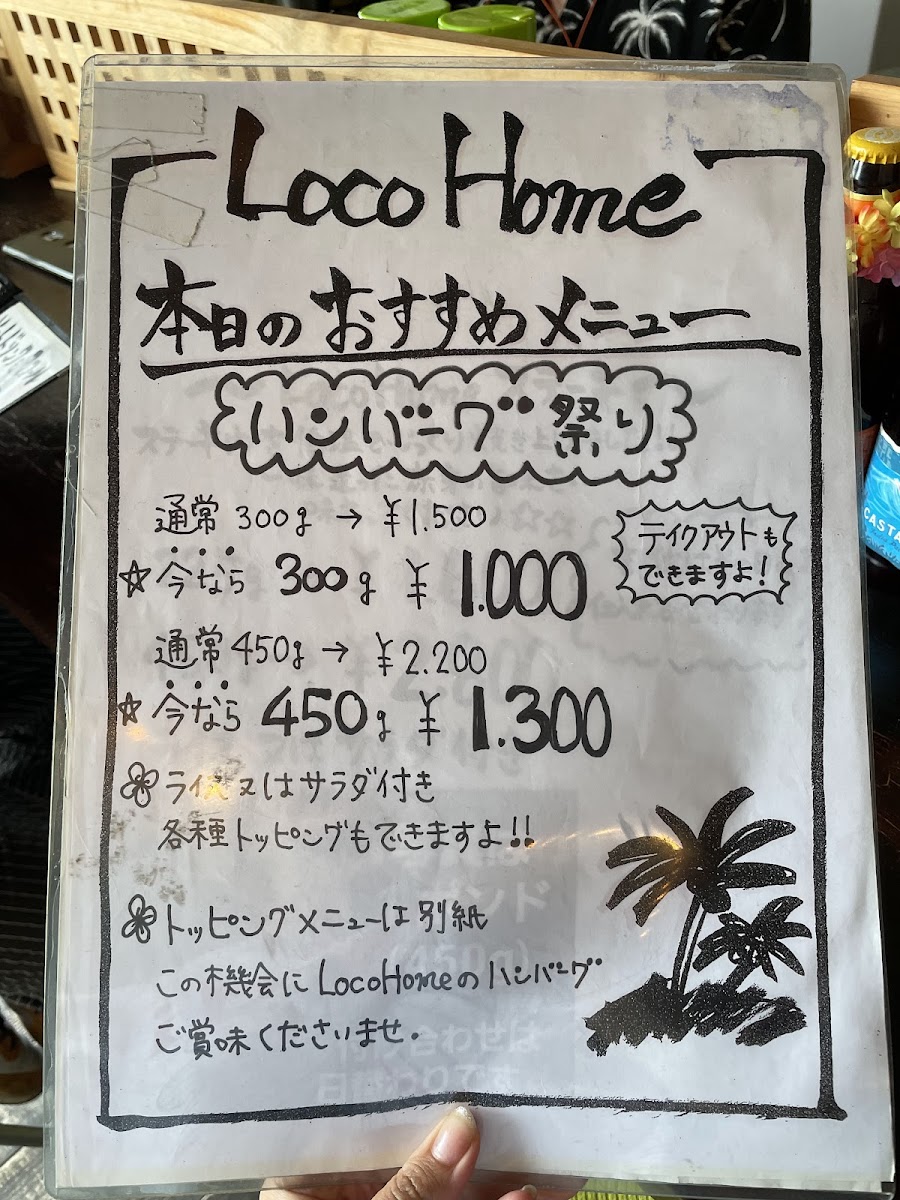 Loco Home
本日のおすすめメニュー
ハンバーグ祭り
通常 300g → ¥1.500
テイクアウトも
できますよ!
☆今なら 300g ¥ 1.000
通常 450g → ¥2.200
☆今なら 450g ¥ 1.300
ライス又はサラダ付き
各種トッピングもできますよ!!
トッピングメニューは別紙
この機会にLocoHomeのハンバーグ
ご賞味くださいませ.
CASTA